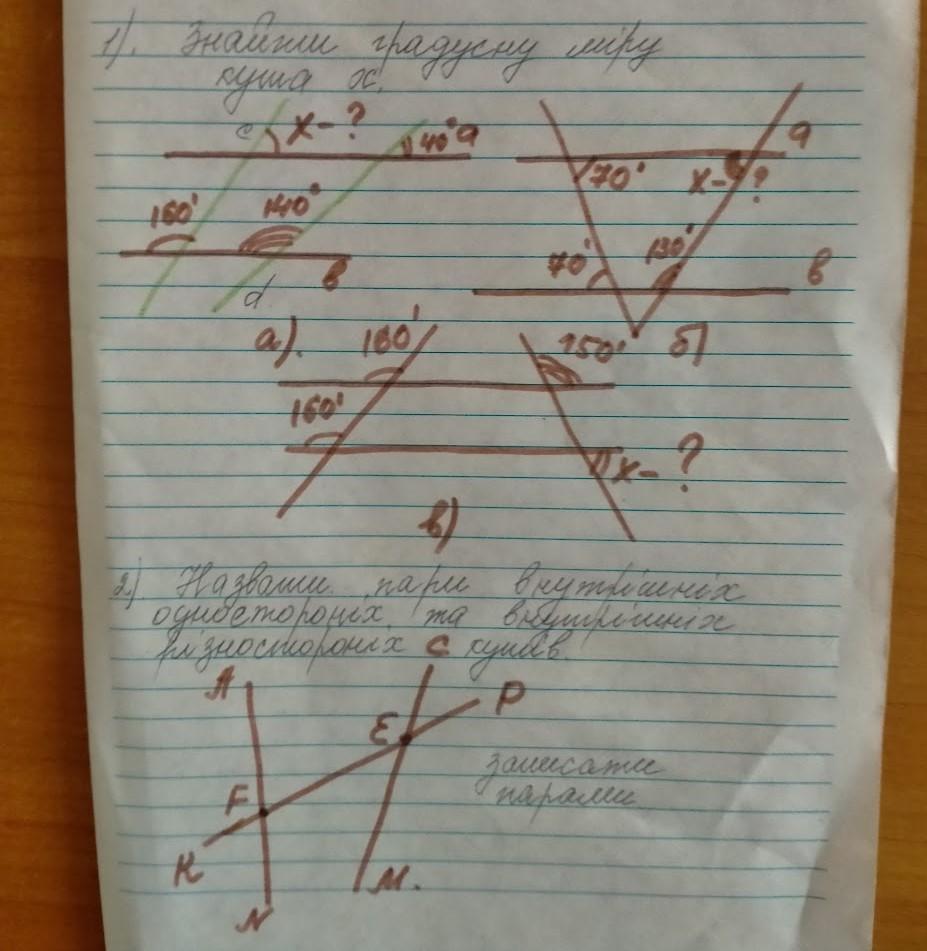 1). Знайти градусну міру
кута x.
c x-? 40° a
160° 140°
в
d
а).
a
70° x-?
70° 130° в
б)
160° 150°
160°
x-?
в)
2). Назвати пари внутрішніх
односторонніх та внутрішніх
різносторонніх кутів.
A C P
E
записати
парами
F
K
M.
N